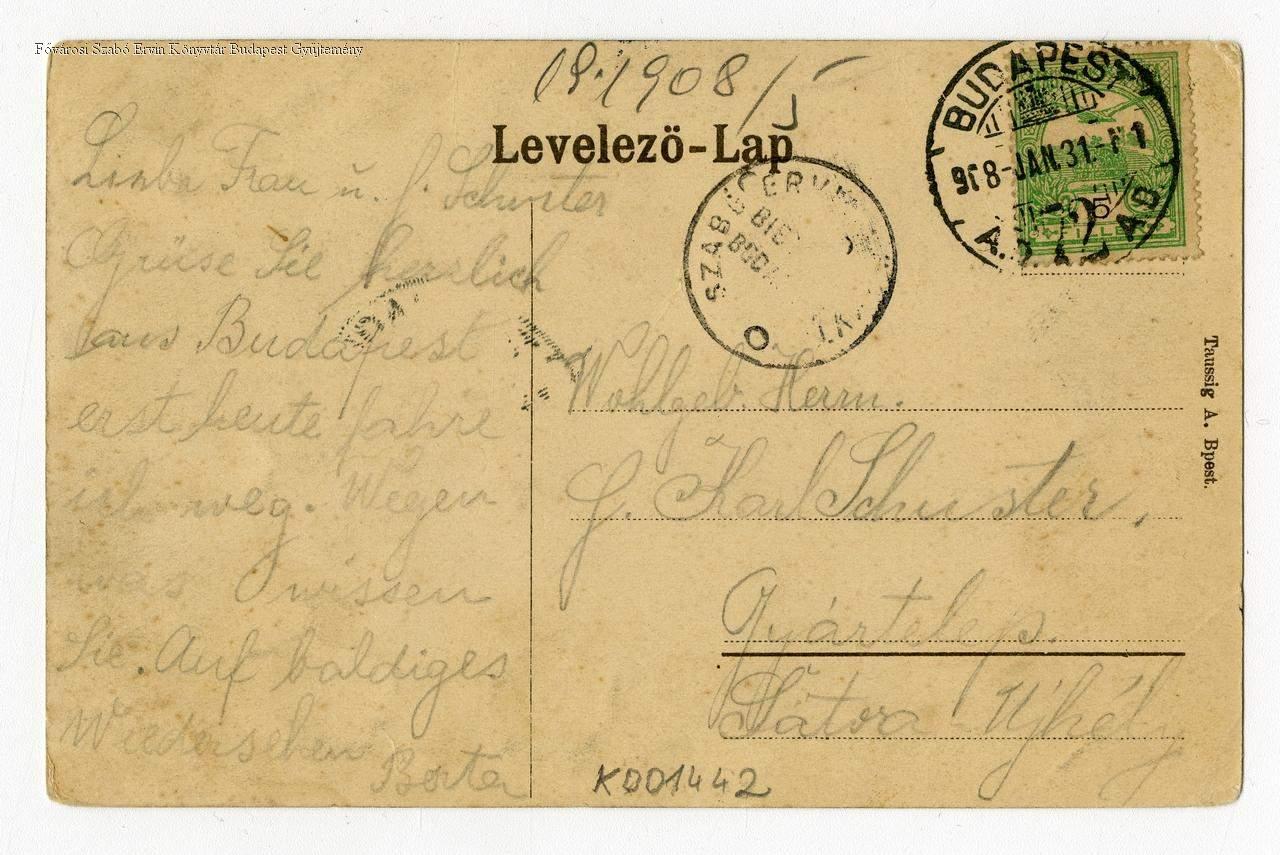 Fővárosi Szabó Ervin Könyvtár Budapest Gyűjtemény
1908/
Levelező-Lap
BUDAPEST
908 JAN.31.
SZABÓ ERV
BUDA
FILLÉR
Frau u. H. Schuster
Grüse Sie herzlich
aus Budapest
erst heute fahre
ich weg. Wegen
was wissen
Sie. Auf baldiges
Wiedersehen
Wohlgeb. Herrn.
H. Karl Schuster,
Gyártelep.
Sátora-Ujhély
Taussig A. Bpest.
K001442